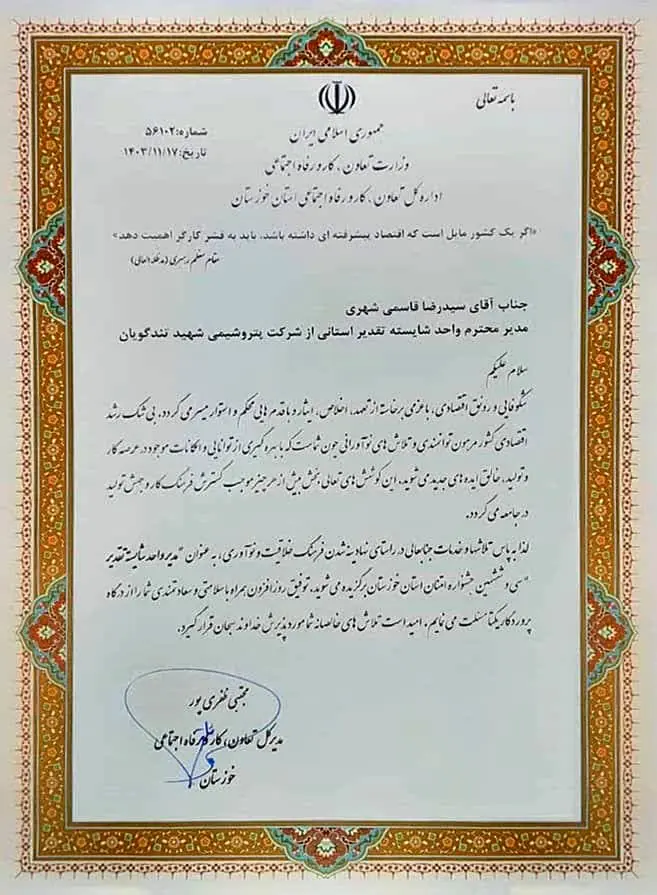 باسمه تعالی
جمهوری اسلامی ایران
وزارت تعاون، کار و رفاه اجتماعی
اداره کل تعاون، کار و رفاه اجتماعی استان خوزستان
شماره: ۵۶۱۰۲
تاریخ: ۱۴۰۳/۱۱/۱۷
«اگر یک کشور مایل است که اقتصاد پیشرفته ای داشته باشد، باید به قشر کارگر اهمیت دهد»
مقام معظم رهبری (مدظله العالی)
جناب آقای سیدرضا قاسمی شهری
مدیر محترم واحد شایسته تقدیر استانی از شرکت پتروشیمی شهید تندگویان
سلام علیکم
شکوفایی و رونق اقتصادی، با عزمی برخاسته از تعهد، اخلاص، ایثار و با قدم هایی محکم و استوار میسر می گردد. بی شک رشد
اقتصادی کشور مرهون توانمندی و تلاش های نوآورانی چون شماست که با بهره گیری از توانایی و امکانات موجود در عرصه کار
و تولید، خالق ایده های جدید می شوید. این کوشش های تعالی بخش بیش از هر چیز موجب گسترش فرهنگ کار و جهش تولید
در جامعه می گردد.
لذا به پاس تلاشها و خدمات جنابعالی در راستای نهادینه شدن فرهنگ خلاقیت و نوآوری، به عنوان "مدیر واحد شایسته تقدیر
"سی و ششمین جشنواره امتنان استان خوزستان برگزیده می شوید، توفیق روز افزون همراه با سلامتی و سعادتمندی شما را از درگاه
پروردگار یکتا مسئلت می نمایم. امید است تلاش های خالصانه شما مورد پذیرش خداوند سبحان قرار گیرد.
مجتبی ظفری پور
مدیرکل تعاون، کار و رفاه اجتماعی
خوزستان